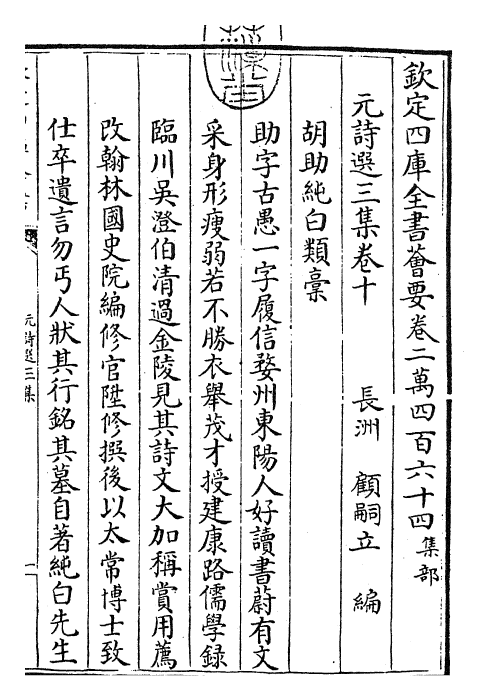 欽定四庫全書薈要卷二萬四百六十四集部
元詩選三集卷十　長洲　顧嗣立　編
胡助純白類稾
助字古愚一字履信婺州東陽人好讀書蔚有文
采身形瘦弱若不勝衣舉茂才授建康路儒學録
臨川吳澄伯清過金陵見其詩文大加稱賞用薦
改翰林國史院編修官陞修撰後以太常博士致
仕卒遺言勿丐人狀其行銘其墓自著純白先生
元詩選三集
一